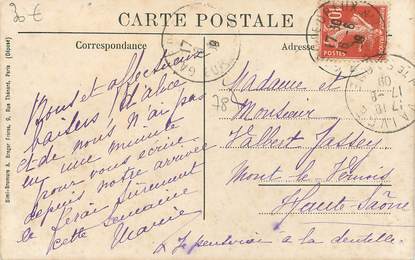 30 €
CARTE POSTALE
Correspondance
Adresse
Bons et affectueux
baisers d'alice
et de nous. N'ai pas
eu une minute
pour vous écrire
depuis notre arrivée
le ferai sûrement
cette semaine
Marie
Madame et
Monsieur
Valbert Jassey
Mont le Vernois
Haute-Saône
à la dentelle
78
10
POSTES
Simi-Bromure A. Breger Frères, 9, Rue Thénard, Paris (Déposé)